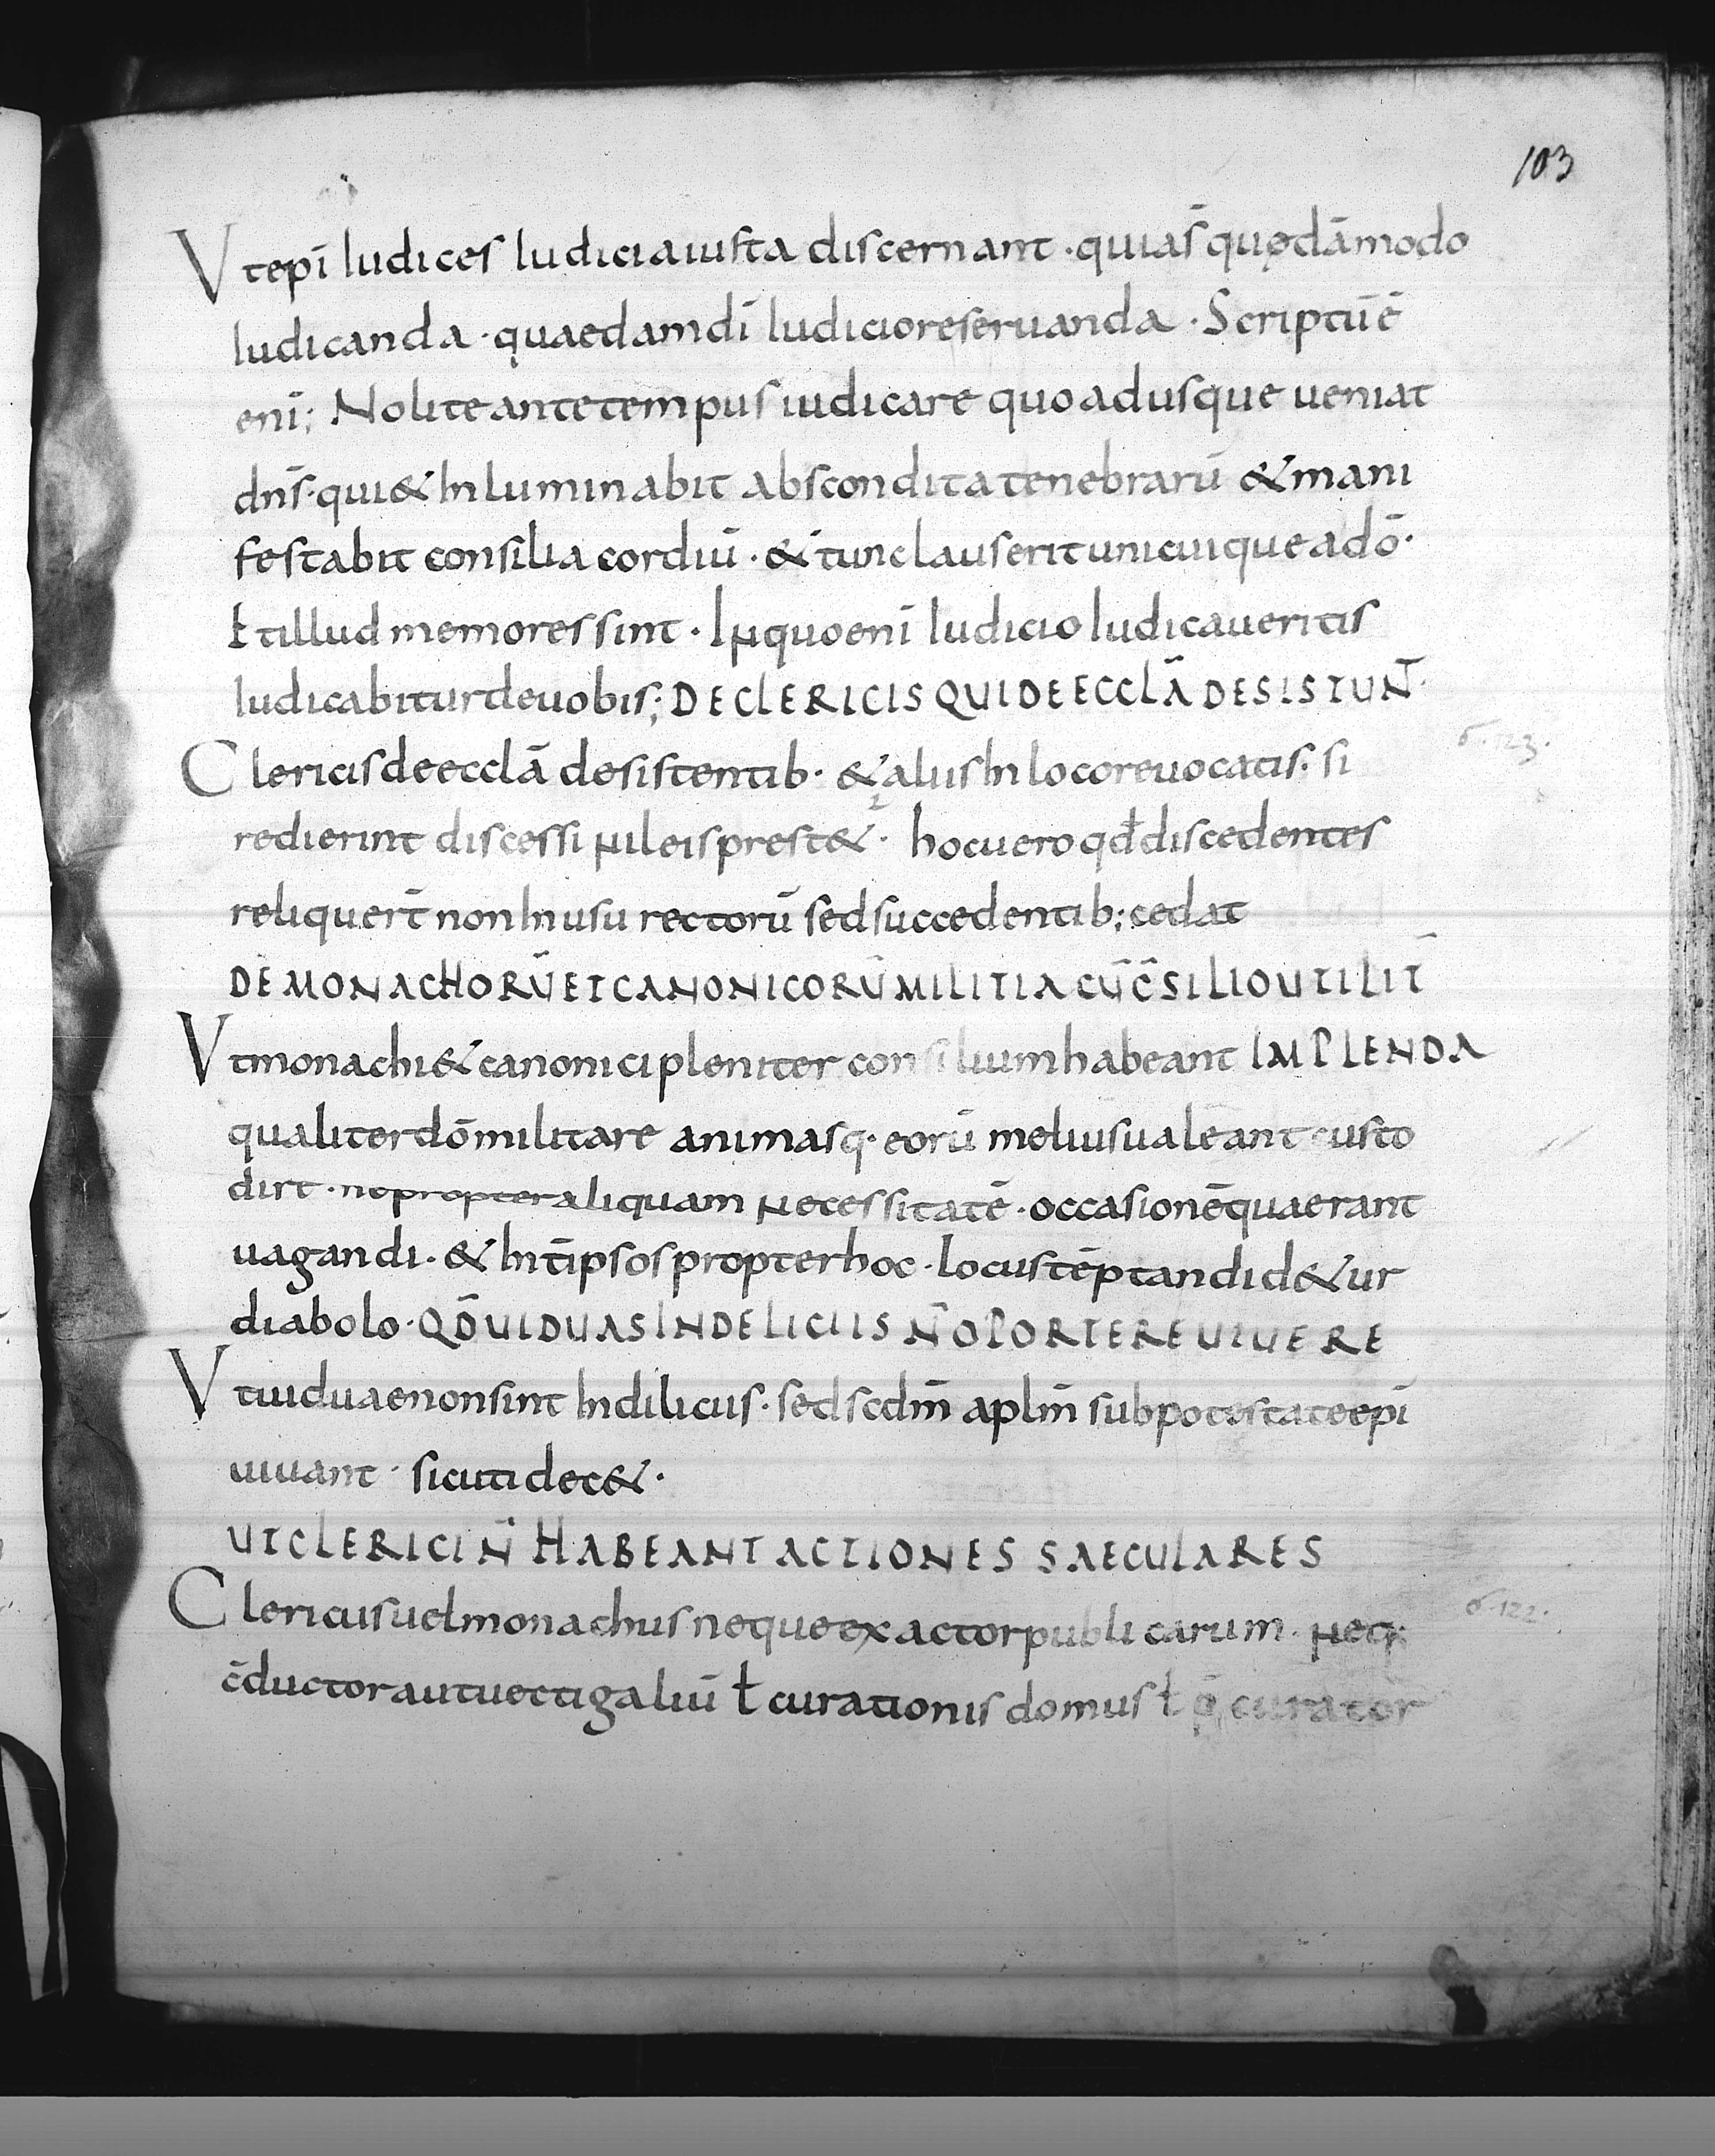 103
Utepī Iudices Iudicia iusta discernant · quia s̄ quędā modo
Iudicanda · quaedam dī Iudicio reseruanda · Scriptū ē
enī; Nolite ante tempus iudicare quoadusque ueniat
dn̄s · qui & Inluminabit abscondita tenebrarū & mani
festabit consilia cordiū · & tunc laus erit unicuique a dō ·
Et illud memores sint · In quo enī Iudicio Iudicaueritis
Iudicabitur de uobis; DE CLERICIS QUI DE ECCLĀ DESISTUN̄ ·
Clericis de ecclā desistentib · & aliis In loco reuocatis · si
σ · 123 ·
redierint discessi nil eis prest& · hoc uero qđ discedentes
reliquer̄t non In usu rectorū sed succedentib; cedat
DE MONACHORŪ ET CANONICORŪ MILITIA CŪ C̄SILIO UTILIT̄
Ut monachi & canonici pleniter consilium habeant IMPLENDA
qualiter dō militare animasq · eorū melius ualeant custo
dire · ne propter aliquam necessitatē · occasionē quaerant
uagandi · & Int̄ ipsos propter hoc · locus tēptandi d&ur
diabolo · QD̄ UIDUAS IN DELICIIS N̄ OPORTERE UIUERE
Ut uiduae non sint In diliciis · sed scdm̄ aplm̄ sub potestate epī
uiuant · sicuti dec& ·
UT CLERICI N̄ HABEANT ACTIONES SAECULARES
Clericus uel monachus neque exactor publicarum · neq;
σ · 122 ·
c̄ductor aut uectigaliū ł curationis domus ł curator